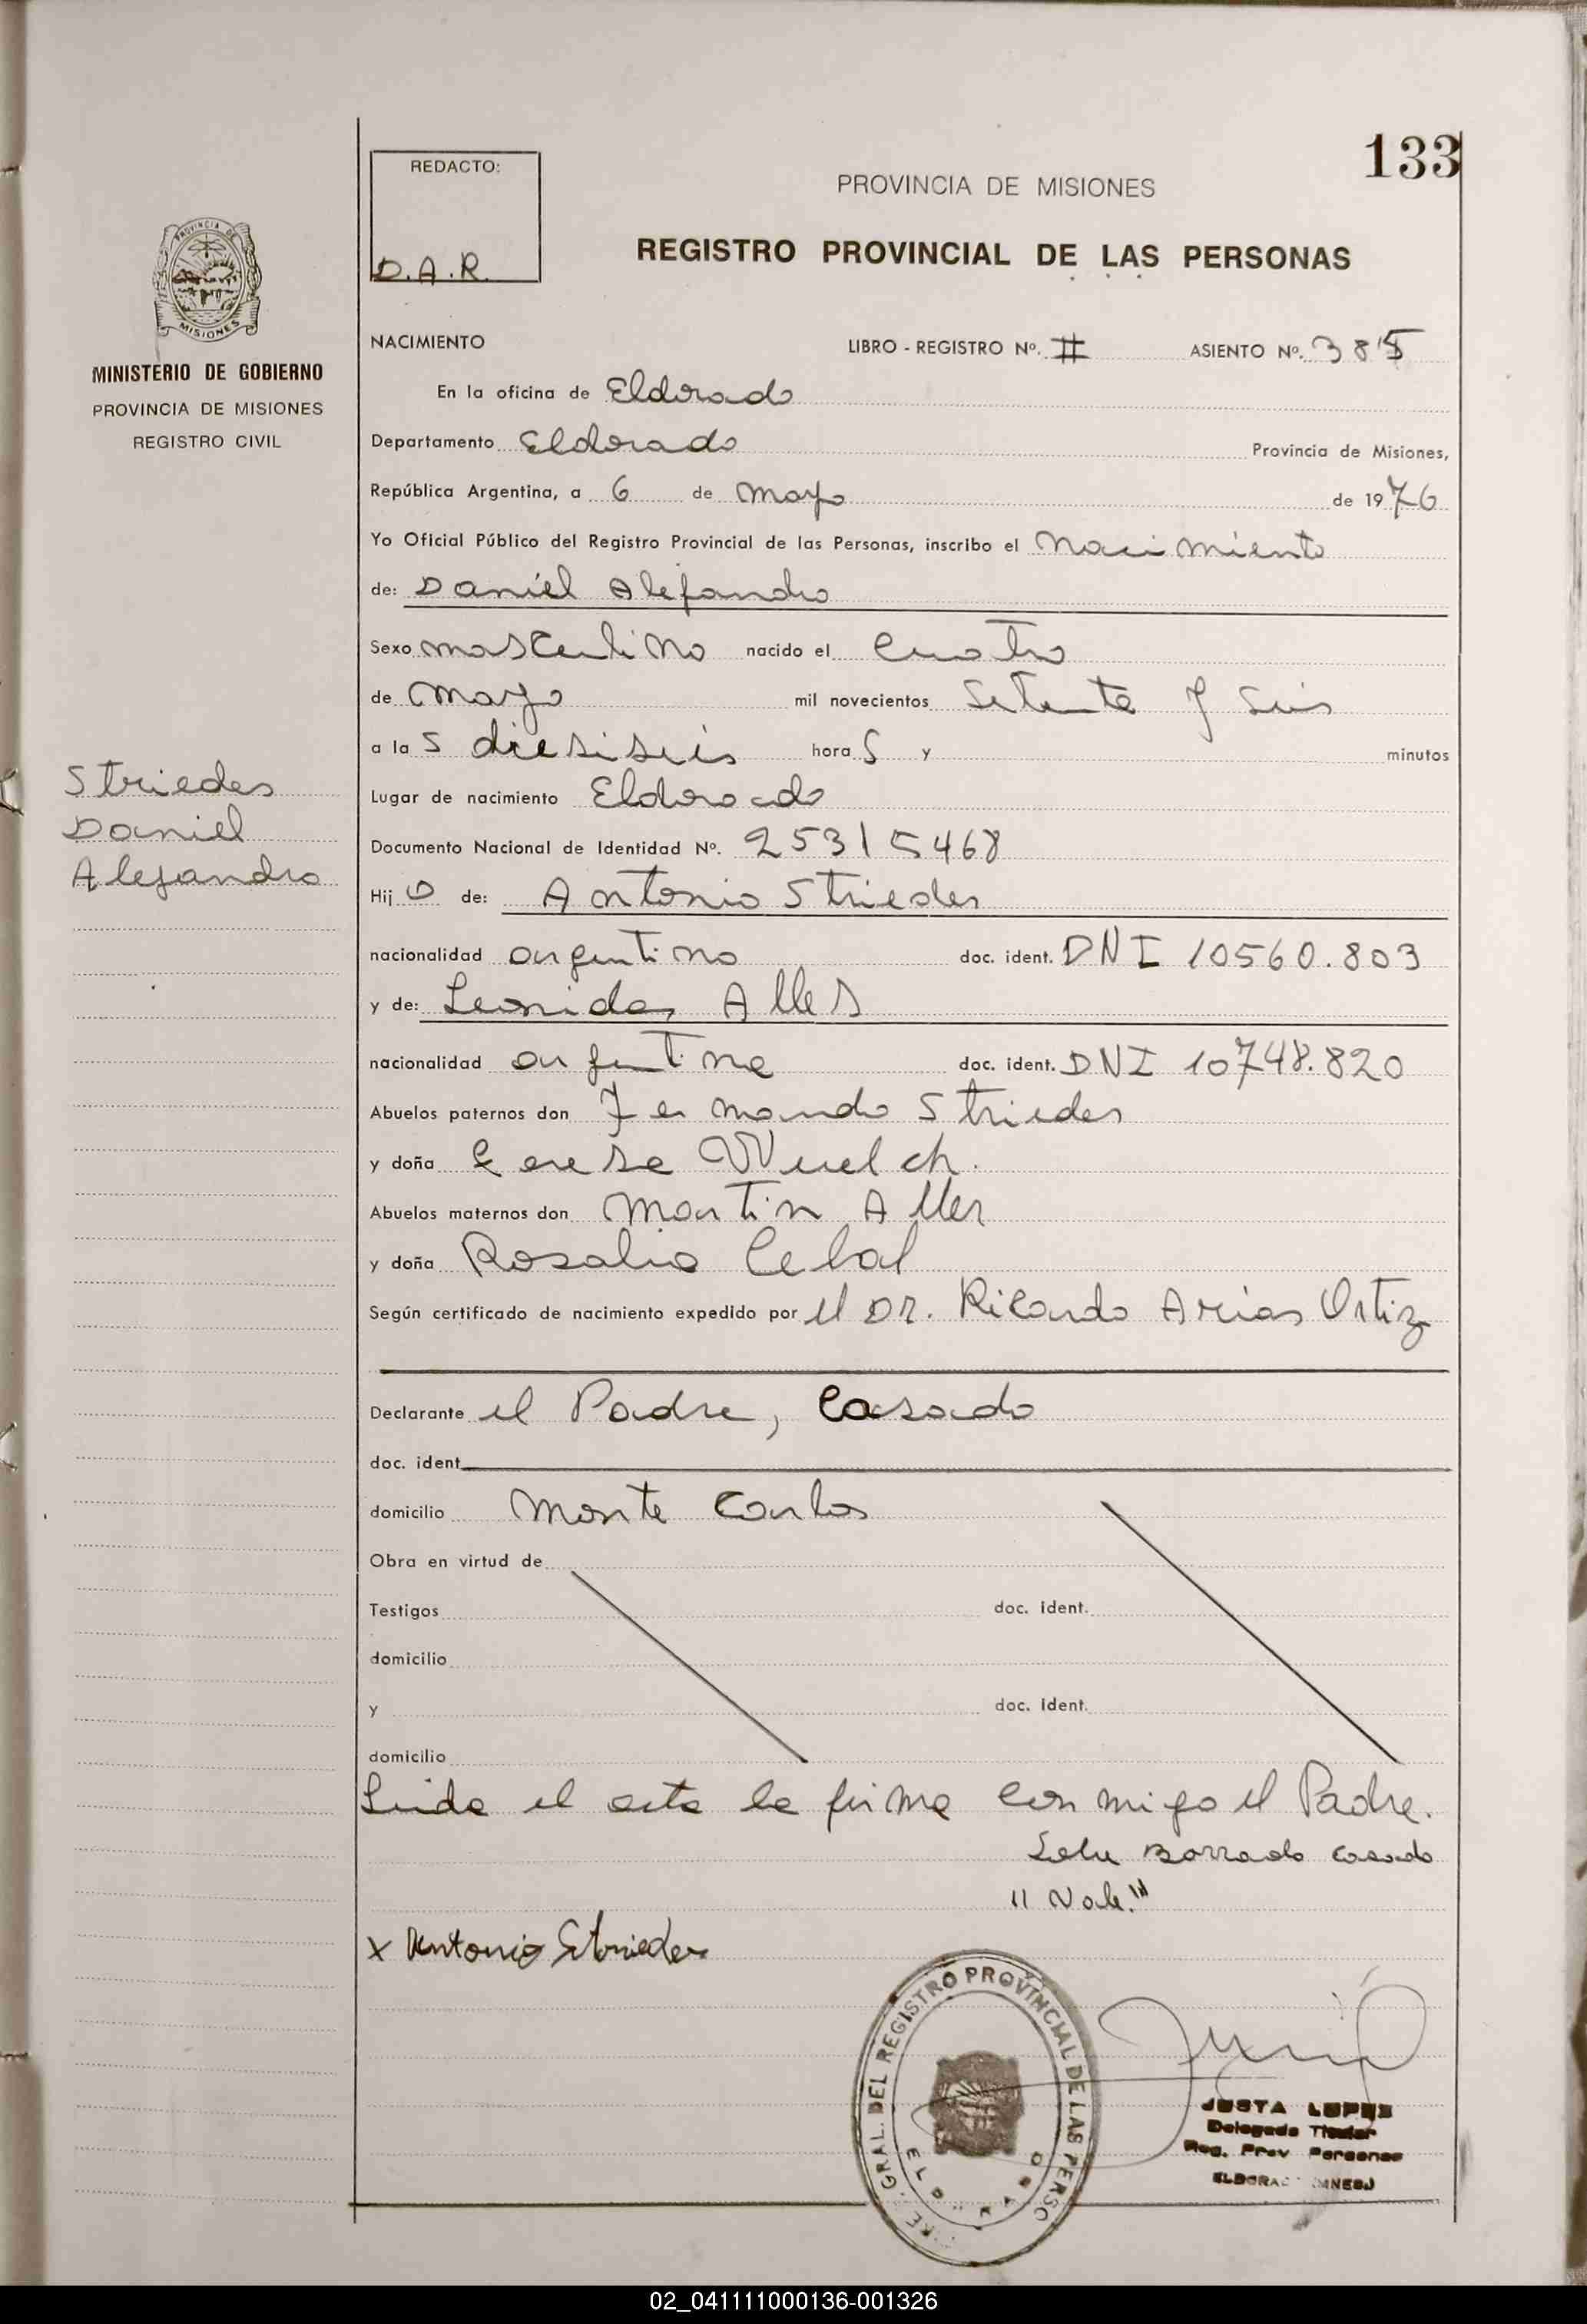 133
REDACTO:
D.A.R.
PROVINCIA DE MISIONES
REGISTRO PROVINCIAL DE LAS PERSONAS
PROVINCIA DE
MISIONES
MINISTERIO DE GOBIERNO
PROVINCIA DE MISIONES
REGISTRO CIVIL
NACIMIENTO LIBRO - REGISTRO Nº. II ASIENTO Nº. 385
En la oficina de Eldorado
Departamento Eldorado Provincia de Misiones,
República Argentina, a 6 de mayo de 1976
Yo Oficial Público del Registro Provincial de las Personas, inscribo el nacimiento
de: Daniel Alejandro
Sexo masculino nacido el cuatro
de mayo mil novecientos setenta y seis
a la s diesiseis hora s y minutos
Strieder
Daniel
Alejandro
Lugar de nacimiento Eldorado
Documento Nacional de Identidad Nº. 25315468
Hij o de: Antonio Strieder
nacionalidad argentino doc. ident. DNI 10560.803
y de: Leonida Alles
nacionalidad argentina doc. ident. DNI 10748.820
Abuelos paternos don Strieder
y doña
Abuelos maternos don Martin Aller
y doña Rosalia
Según certificado de nacimiento expedido por el Dr. Ricardo Arias Ortiz
Declarante el Padre, Casado
doc. ident
domicilio Monte Carlos
Obra en virtud de
Testigos doc. ident.
domicilio
y doc. ident.
domicilio
Leida el acta la firma conmigo el Padre.
Borrado casado
"Vale"
x Antonio Strieder
GRAL. DEL REGISTRO PROVINCIAL DE LAS PERSO
JUSTA LOPEZ
Delegada Titular
Reg. Prov Personas
02_041111000136-001326